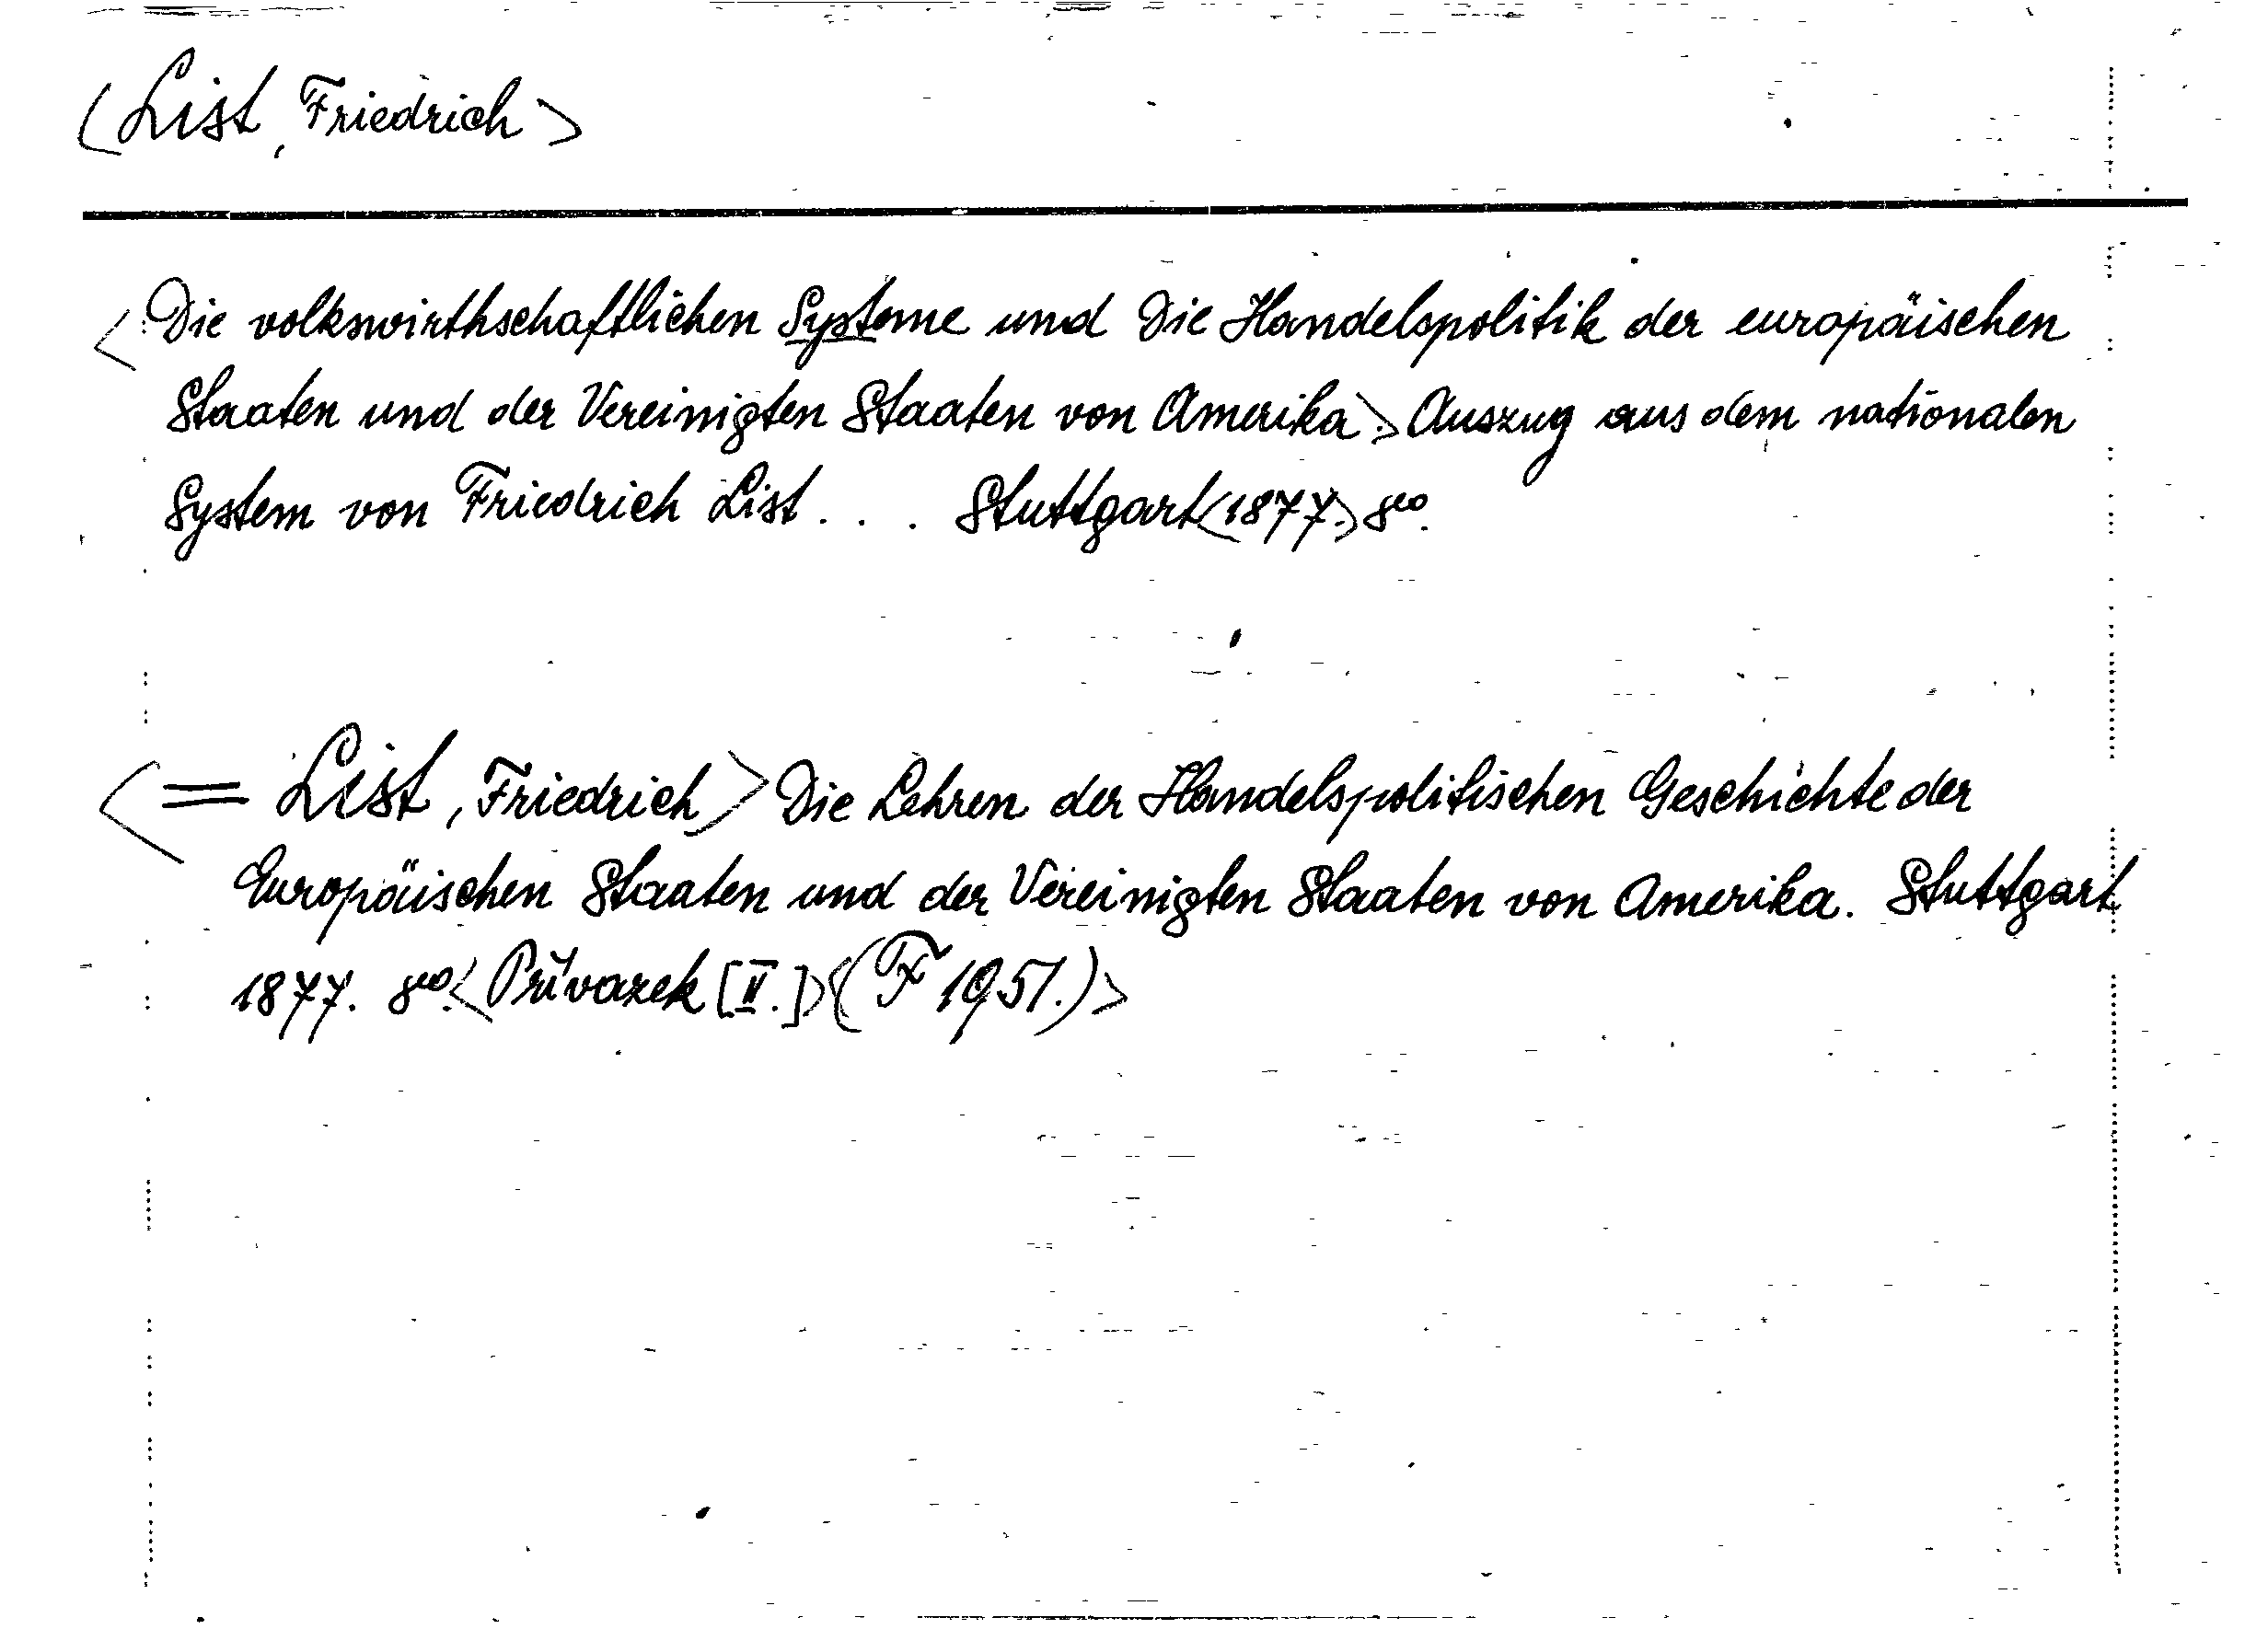 <List, Friedrich>
<Die volkswirthschaftlichen Systeme und die Handelspolitik der europäischen
Staaten und der Vereinigten Staaten von Amerika.> Auszug aus dem nationalen
System von Friedrich List . . . Stuttgart <1877.> 8vo.
<= List, Friedrich> Die Lehren der Handelspolitischen Geschichte der
Europäischen Staaten und der Vereinigten Staaten von Amerika. Stuttgart
1877. 8vo. <Přívazek [II.]> <(F 1951.)>